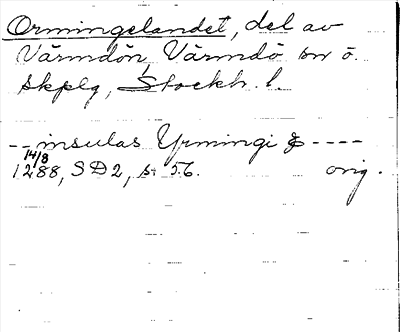 Ormingelandet, del av
Värmdön, Värmdö sn o.
skplg, Stockh. l.
-- insulas Yrmingi & ----
14/8
1288, SD2, s 56. orig.